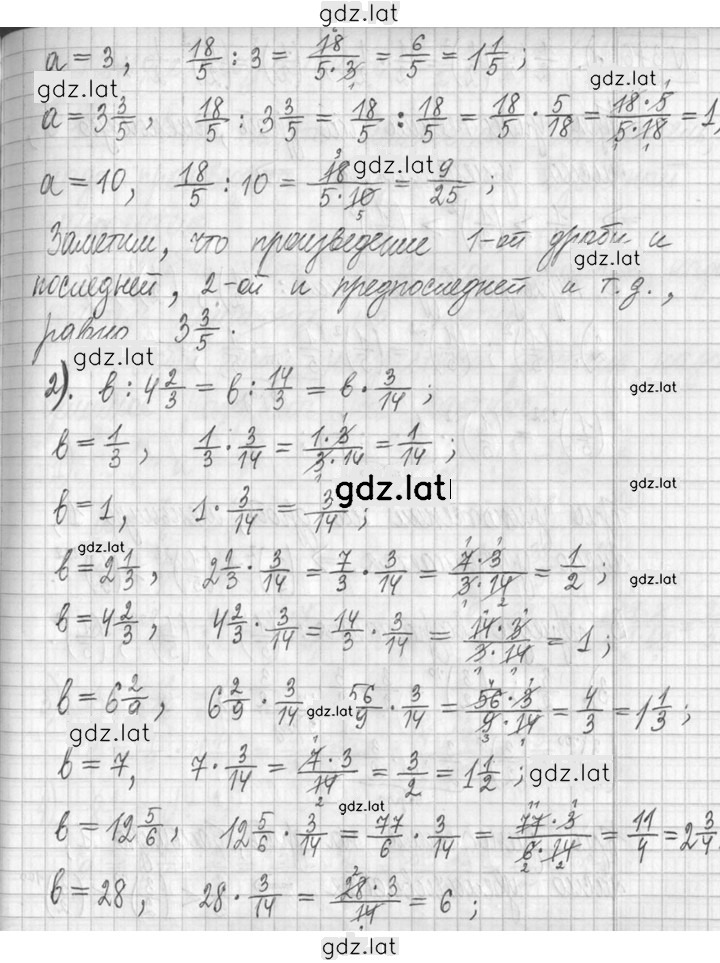 gdz.lat
a = 3, 18/5 : 3 = 18/(5·3) = 6/5 = 1 1/5 ;
gdz.lat gdz.lat
a = 3 3/5, 18/5 : 3 3/5 = 18/5 : 18/5 = 18/5 · 5/18 = (18·5)/(5·18) = 1,
gdz.lat
a = 10, 18/5 : 10 = 18/(5·10) = 9/25 ;
Заметим, что произведение 1-ой дроби и
gdz.lat
последней, 2-ой и предпоследней и т.д.,
равно 3 3/5.
gdz.lat
2). в : 4 2/3 = в : 14/3 = в · 3/14 ;
gdz.lat
в = 1/3, 1/3 · 3/14 = (1·3)/(3·14) = 1/14 ;
gdz.lat gdz.lat
в = 1, 1 · 3/14 = 3/14 ;
gdz.lat
в = 2 1/3, 2 1/3 · 3/14 = 7/3 · 3/14 = (7·3)/(3·14) = 1/2 ;
gdz.lat
в = 4 2/3, 4 2/3 · 3/14 = 14/3 · 3/14 = (14·3)/(3·14) = 1 ;
в = 6 2/9, 6 2/9 · 3/14 56/9 · 3/14 = (56·3)/(9·14) = 4/3 = 1 1/3 ;
gdz.lat gdz.lat
в = 7, 7 · 3/14 = (7·3)/14 = 3/2 = 1 1/2 ;
gdz.lat
gdz.lat
в = 12 5/6, 12 5/6 · 3/14 = 77/6 · 3/14 = (77·3)/(6·14) = 11/4 = 2 3/4
в = 28, 28 · 3/14 = (28·3)/14 = 6 ;
gdz.lat